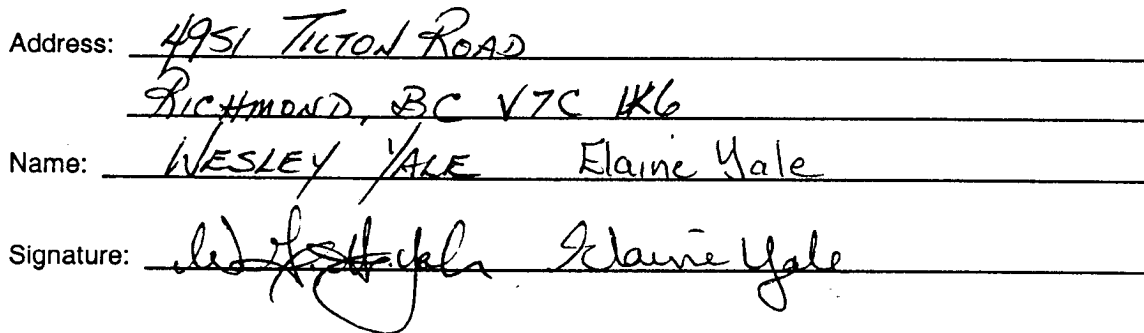 Address: 4951 TILTON ROAD
RICHMOND, BC V7C 1K6
Name: WESLEY YALE Elaine Yale
Signature: Elaine Yale